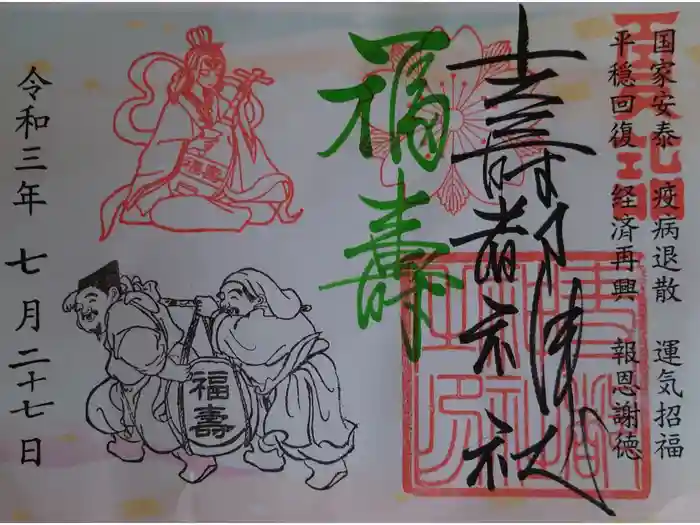 国家安泰 疫病退散 運気招福
平穏回復 経済再興 報恩謝徳
壽都神社
福壽
福壽
令和三年 七月二十七日